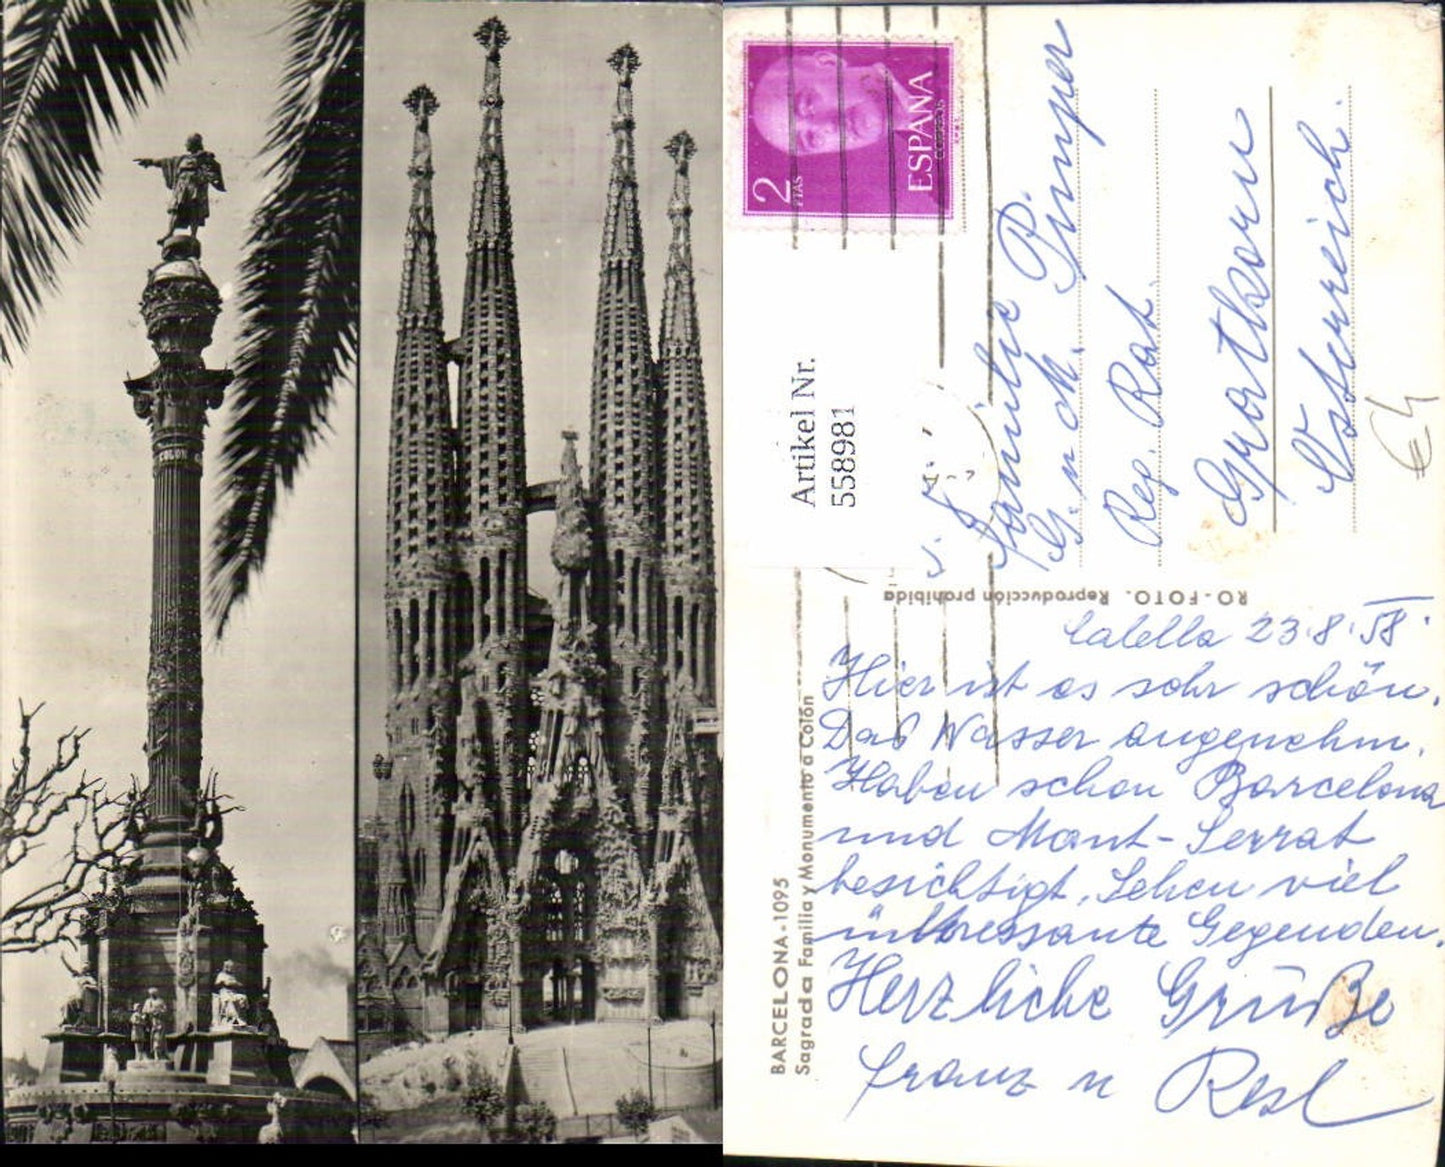 COLON
2
PTAS
ESPAÑA
CORREOS
Artikel Nr.
558981
Familie P. Pumper
Reg. Rat.
Gratkorn
Österreich.
€4
RO-FOTO. Reproducción prohibida
BARCELONA - 1095
Sagrada Familia y Monumento a Colón
Calella 23.8.58
Hier ist es sehr schön.
Das Wasser angenehm.
Haben schon Barcelona
und Mont-Serrat
besichtigt. Sehen viel
interessante Gegenden.
Herzliche Grüße
Franz u Resl